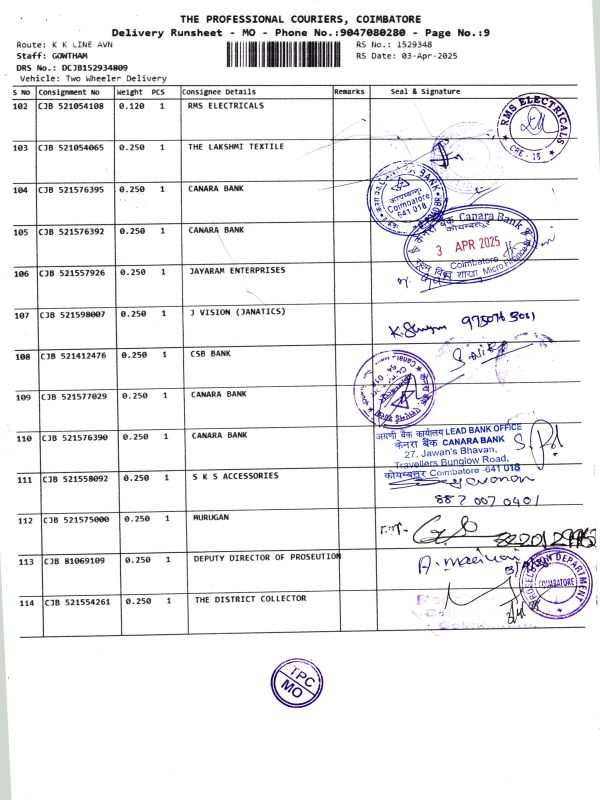 THE PROFESSIONAL COURIERS, COIMBATORE
Delivery Runsheet - MO - Phone No.:9047080280 - Page No.:9
Route: K K LINE AVN
RS No.: 1529348
Staff: GOWTHAM
RS Date: 03-Apr-2025
DRS No.: DCJB152934809
Vehicle: Two Wheeler Delivery
S No Consignment No Weight PCS Consignee Details Remarks Seal & Signature
102 CJB 521054108 0.120 1 RMS ELECTRICALS
RMS ELECTRICALS
CBE - 18
103 CJB 521054065 0.250 1 THE LAKSHMI TEXTILE
104 CJB 521576395 0.250 1 CANARA BANK
Coimbatore
641 018
105 CJB 521576392 0.250 1 CANARA BANK
केनरा बैंक Canara Bank
3 APR 2025
Coimbatore
106 CJB 521557926 0.250 1 JAYARAM ENTERPRISES
107 CJB 521598007 0.250 1 J VISION (JANATICS)
108 CJB 521412476 0.250 1 CSB BANK
109 CJB 521577029 0.250 1 CANARA BANK
110 CJB 521576390 0.250 1 CANARA BANK
अग्रणी बैंक कार्यालय LEAD BANK OFFICE
केनरा बैंक CANARA BANK
27, Jawan's Bhavan,
Travellers Bunglow Road,
कोयम्बत्तूर Coimbatore -641 018
111 CJB 521558092 0.250 1 S K S ACCESSORIES
887 007 0401
112 CJB 521575000 0.250 1 MURUGAN
113 CJB 81069109 0.250 1 DEPUTY DIRECTOR OF PROSEUTION
PROSECUTION DEPARTMENT
COIMBATORE
114 CJB 521554261 0.250 1 THE DISTRICT COLLECTOR
TPC
MO